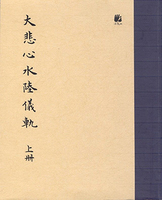 大悲心水陸儀軌
上冊